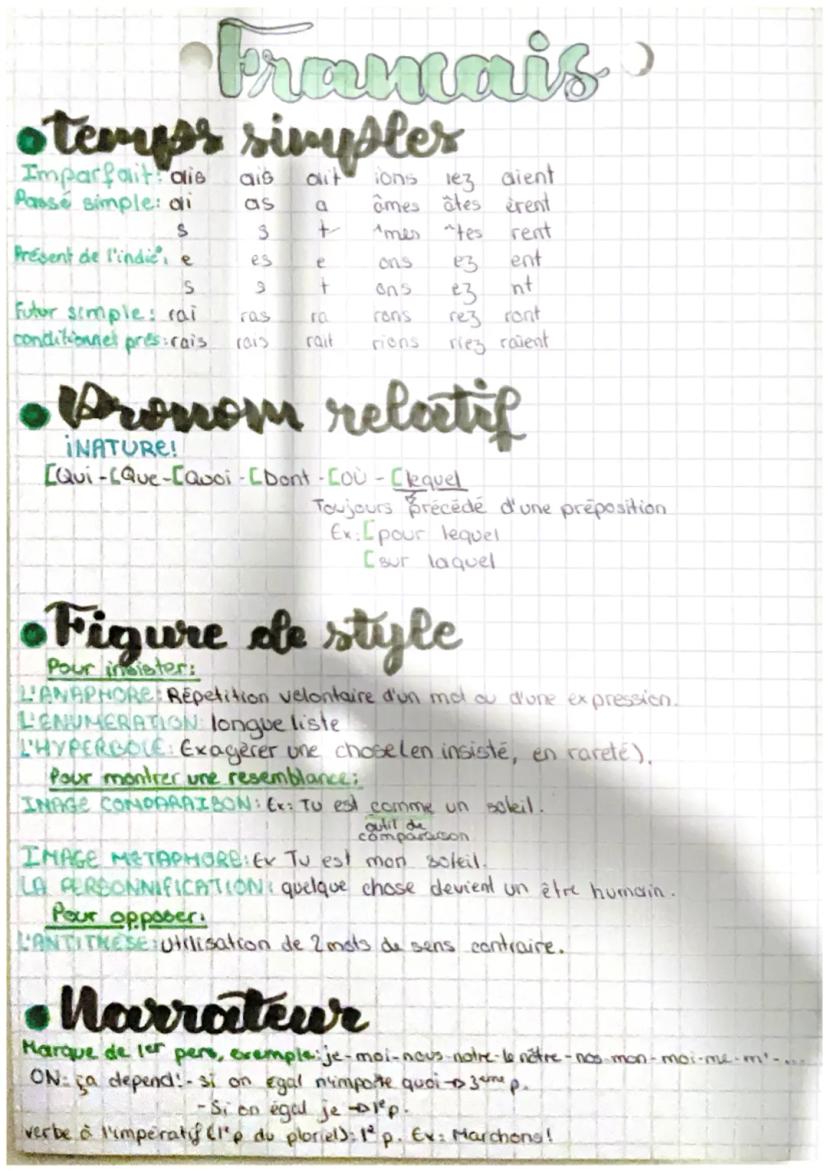 Francais
temps simples
Imparfait: ais ais ait ions iez aient
Passé simple: ai as a âmes âtes èrent
s s t ^mes ^tes rent
Présent de l'indic. e es e ons ez ent
s s t ons ez nt
Futur simple: rai ras ra rons rez ront
conditionnel prés: rais rais rait rions riez raient
Pronom relatif
¡NATURE!
[Qui - [Que - [Quoi - [Dont - [Où - [lequel
Toujours précédé d'une préposition
Ex: [pour lequel
[sur laquel
Figure de style
Pour insister:
L'ANAPHORE: Répetition volontaire d'un mot ou d'une expression.
L'ENUMERATION: longue liste
L'HYPERBOLE: Exagérer une chose(en insisté, en rareté).
Pour montrer une resemblance:
IMAGE COMPARAISON: Ex: Tu est comme un soleil.
outil de
comparaison
IMAGE METAPHORE: Ex Tu est mon soleil.
LA PERSONNIFICATION: quelque chose devient un être humain.
Pour opposer:
L'ANTITHESE: utilisation de 2 mots de sens contraire.
Narrateur
Marque de 1er pers, exemple: je-moi-nous-notre-le nôtre-nos-mon-moi-me-m'-...
ON: ça depend!- si on egal n'importe quoi → 3eme p.
- Si on égal je → 1e p.
verbe à l'impératif (1e p du ploriel): 1e p. Ex: Marchons!